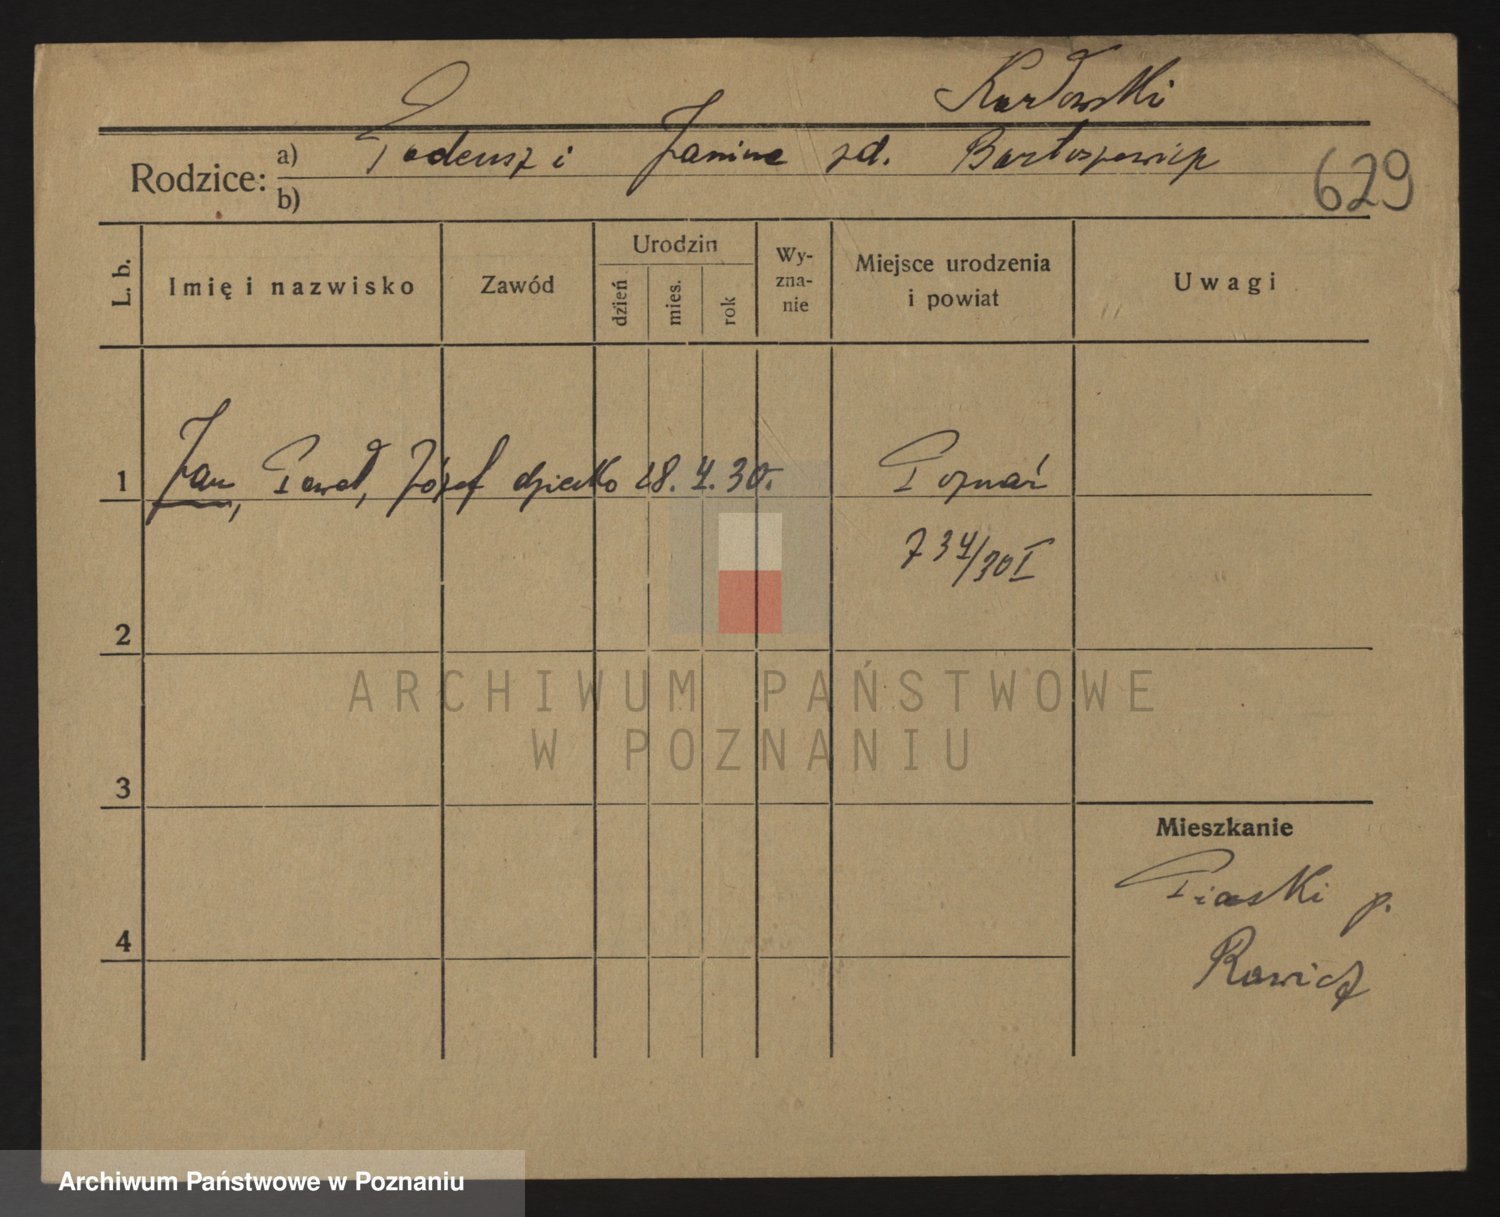 Karłowski
Rodzice: a) Tadeusz i Janina zd. Bartoszewicz
b)
629
L. b.
Imię i nazwisko
Zawód
Urodzin
dzień
mies.
rok
Wy-
zna-
nie
Miejsce urodzenia
i powiat
Uwagi
1 Jan, Paweł, Józef dziecko 28. 4. 30. Poznań
734/30 I
2
3
4
Mieszkanie
Piaski p.
Rawicz
ARCHIWUM PAŃSTWOWE
W POZNANIU
Archiwum Państwowe w Poznaniu